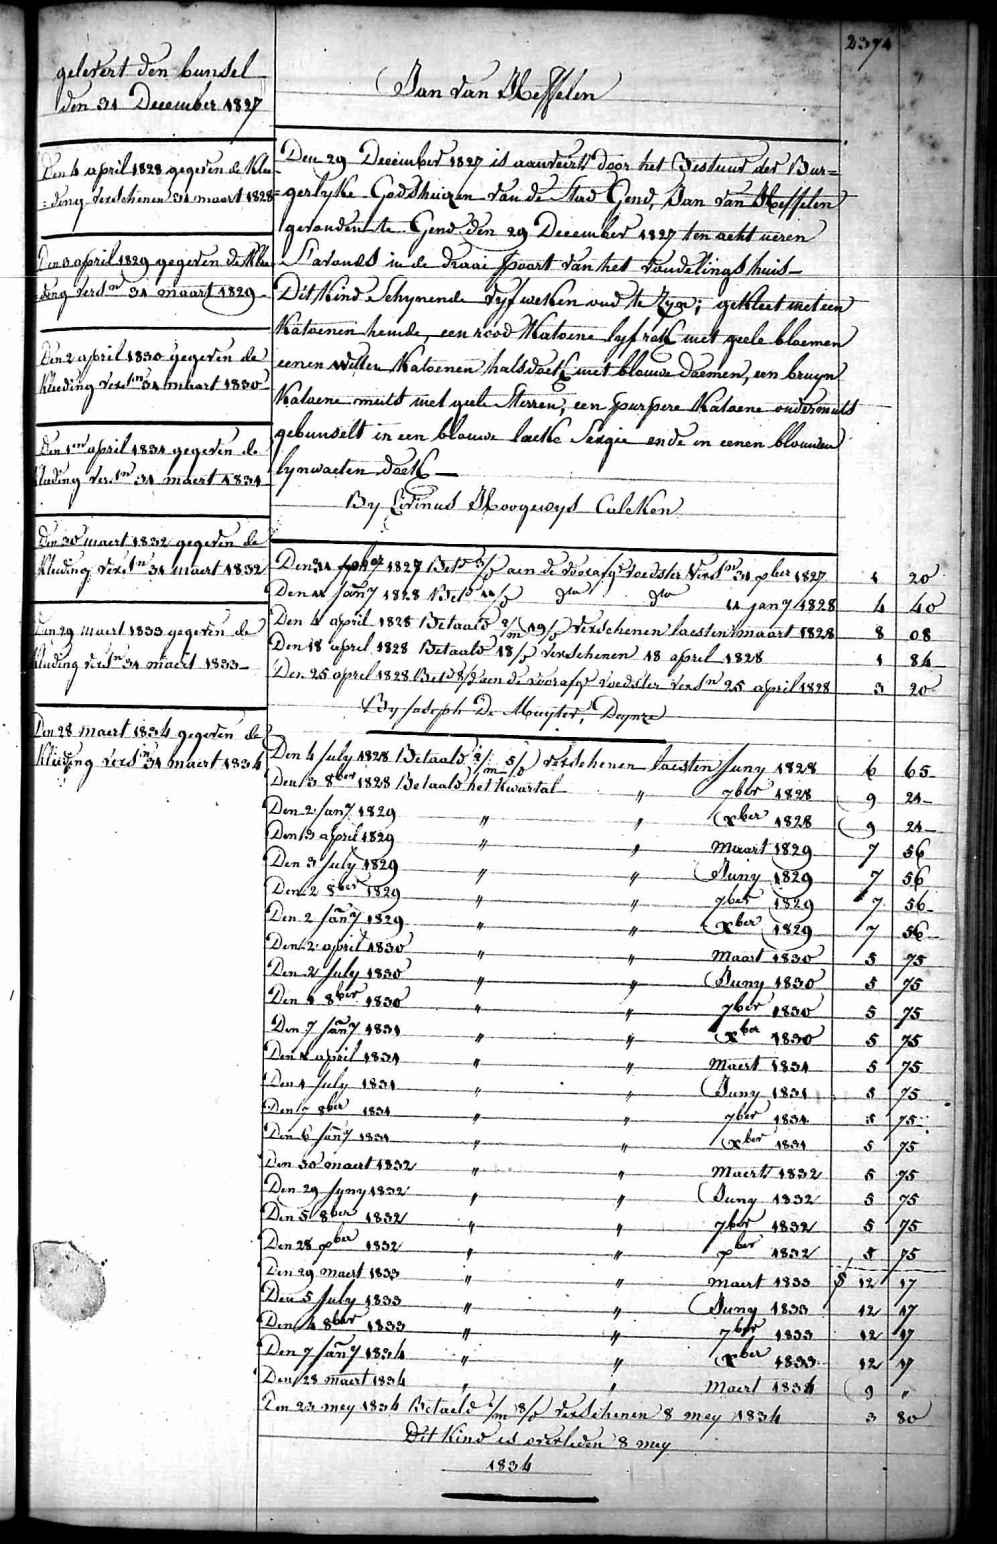 2374
gelevert den bunsel
den 31 December 1827
Den 4 april 1828 gegeven de Klee
=ding verschenen 31 maart 1828
Den 3 april 1829 gegeven de Klee
=ding versn 31 maart 1829
Den 2 april 1830 gegeven de
Kleeding verstn 31 maart 1830
Den 1en april 1831 gegeven de
kleeding verstn 31 maert 1831
Den 30 maert 1832 gegeven de
kleeding verstn 31 maert 1832
Den 29 maert 1833 gegeven de
kleeding verstn 31 maert 1833
Den 28 maert 1834 gegeven de
kleeding verstn 31 maert 1834
Jan van Hesselen
Den 29 December 1827 is aanveirt door het Bestuur der Bur=
gerlyke Godshuizen van de Stad Gend, Jan van Hesselen
gevonden te Gend den 29 December 1827 ten acht ueren
S'avonds in de draai poort van het vondelingshuis
Dit Kind Schynende vyf weken oud te Zyn; gekleet met een
Katoenen hemde, een rood Katoene lyfrok met geele bloemen
eenen witten Katoenen halsdoek met blauwe daemen, een bruyn
Katoene muts met geele Sterren, een purpere Katoene ondermuts
gebunselt in een blauwe lacke Sergie ende in eenen blauwen
lynwaeten doek
By Livinus Hoogewys Caleken
Den 31 xber 1827 Betd 3/d aen de voorafge voedster verstn 31 xber 1827 1 20
Den 11 Jany 1828 Betd 11/d dto dto 11 jany 1828 4 40
Den 4 april 1828 Betaald 2/m 19/d verschenen laesten maart 1828 8 08
Den 18 april 1828 Betaald 18/d verschenen 18 april 1828 1 84
Den 25 april 1828 Betd 8/d aen de voorafge voedster versn 25 april 1828 3 20
By Joseph De Muyter, Deynze
Den 4 July 1828 Betaald 2/m 5/d verschenen laesten Juny 1828 6 65
Den 3 8ber 1828 Betaald het Kwartal " 7ber 1828 9 24
Den 2 Jany 1829 " " xber 1828 9 24
Den 3 april 1829 " " Maart 1829 7 56
Den 3 July 1829 " " Juny 1829 7 56
Den 2 8ber 1829 " " 7ber 1829 7 56
Den 2 Jany 1829 " " xber 1829 7 56
Den 2 april 1830 " " Maart 1830 5 75
Den 2 July 1830 " " Juny 1830 5 75
Den 1 8ber 1830 " " 7ber 1830 5 75
Den 7 Jany 1831 " " xber 1830 5 75
Den 1 april 1831 " " Maert 1831 5 75
Den 1 July 1831 " " Juny 1831 5 75
Den 7 8ber 1831 " " 7ber 1831 5 75
Den 6 Jany 1831 " " xber 1831 5 75
Den 30 maert 1832 " " Maert 1832 5 75
Den 29 Juny 1832 " " Juny 1832 5 75
Den 5 8ber 1832 " " 7ber 1832 5 75
Den 28 xber 1832 " " xber 1832 5 75
Den 29 maert 1833 " " maert 1833 12 17
Den 5 July 1833 " " Juny 1833 12 17
Den 4 8ber 1833 " " 7ber 1833 12 17
Den 7 Jany 1834 " " xber 1833 12 17
Den 28 maert 1834 " " Maert 1834 9 "
Den 23 mey 1834 Betaeld 1/m 8/d verschenen 8 mey 1834 3 80
Dit Kind is overleden 8 mey
1834